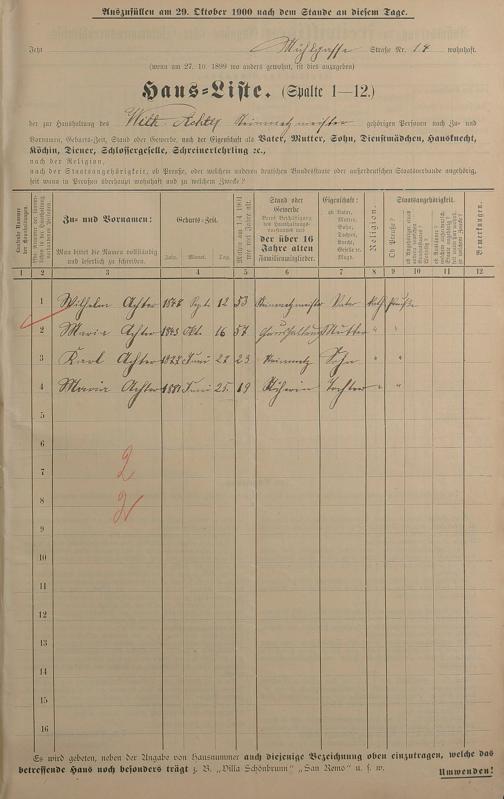 Auszufüllen am 29. Oktober 1900 nach dem Stande an diesem Tage.
Jetzt Mühlgasse Straße Nr. 14 wohnhaft.
(wenn am 27. 10. 1899 wo anders gewohnt, ist dies anzugeben)
Haus-Liste. (Spalte 1—12.)
der zur Haushaltung des Wilh. Achter Steinmetzmeister gehörigen Personen nach Zu- und
Vornamen, Geburts-Zeit, Stand oder Gewerbe, nach der Eigenschaft als Vater, Mutter, Sohn, Dienstmädchen, Hausknecht,
Köchin, Diener, Schlossergeselle, Schreinerlehrling ꝛc.,
nach der Religion,
nach der Staatsangehörigkeit, ob Preuße, oder welchem anderen deutschen Bundesstaate oder außerdeutschen Staatsverbande angehörig,
seit wann in Preußen überhaupt wohnhaft und zu welchem Zwecke?
Zu- und Vornamen:
Man bittet die Namen vollständig und leserlich zu schreiben.
Geburts-Zeit.
Jahr. Monat. Tag.
Stand oder Gewerbe
der über 16 Jahre alten Familienmitglieder.
Eigenschaft:
ob Vater, Mutter, Sohn, Tochter, Knecht, Geselle ꝛc. Magd.
Religion.
Staatsangehörigkeit.
Ob Preuße?
Bemerkungen.
1 2 3 4 5 6 7 8 9 10 11 12
1 Wilhelm Achter 1847 Spt. 12 53 Steinmetzmeister Vater Kath. Preuße
2 Maria Achter 1843 Okt. 16 57 Haushaltung Mutter " "
3 Karl Achter 1877 Juni 27 23 Steinmetz Sohn " "
4 Maria Achter 1881 Juni 25 19 Tochter " "
5
6
7
8
9
10
11
12
13
14
15
16
2
2
Es wird gebeten, neben der Angabe von Hausnummer auch diejenige Bezeichnung oben einzutragen, welche das
betreffende Haus noch besonders trägt z. B. „Villa Schönbrunn" „San Remo" u. s. w. Umwenden!